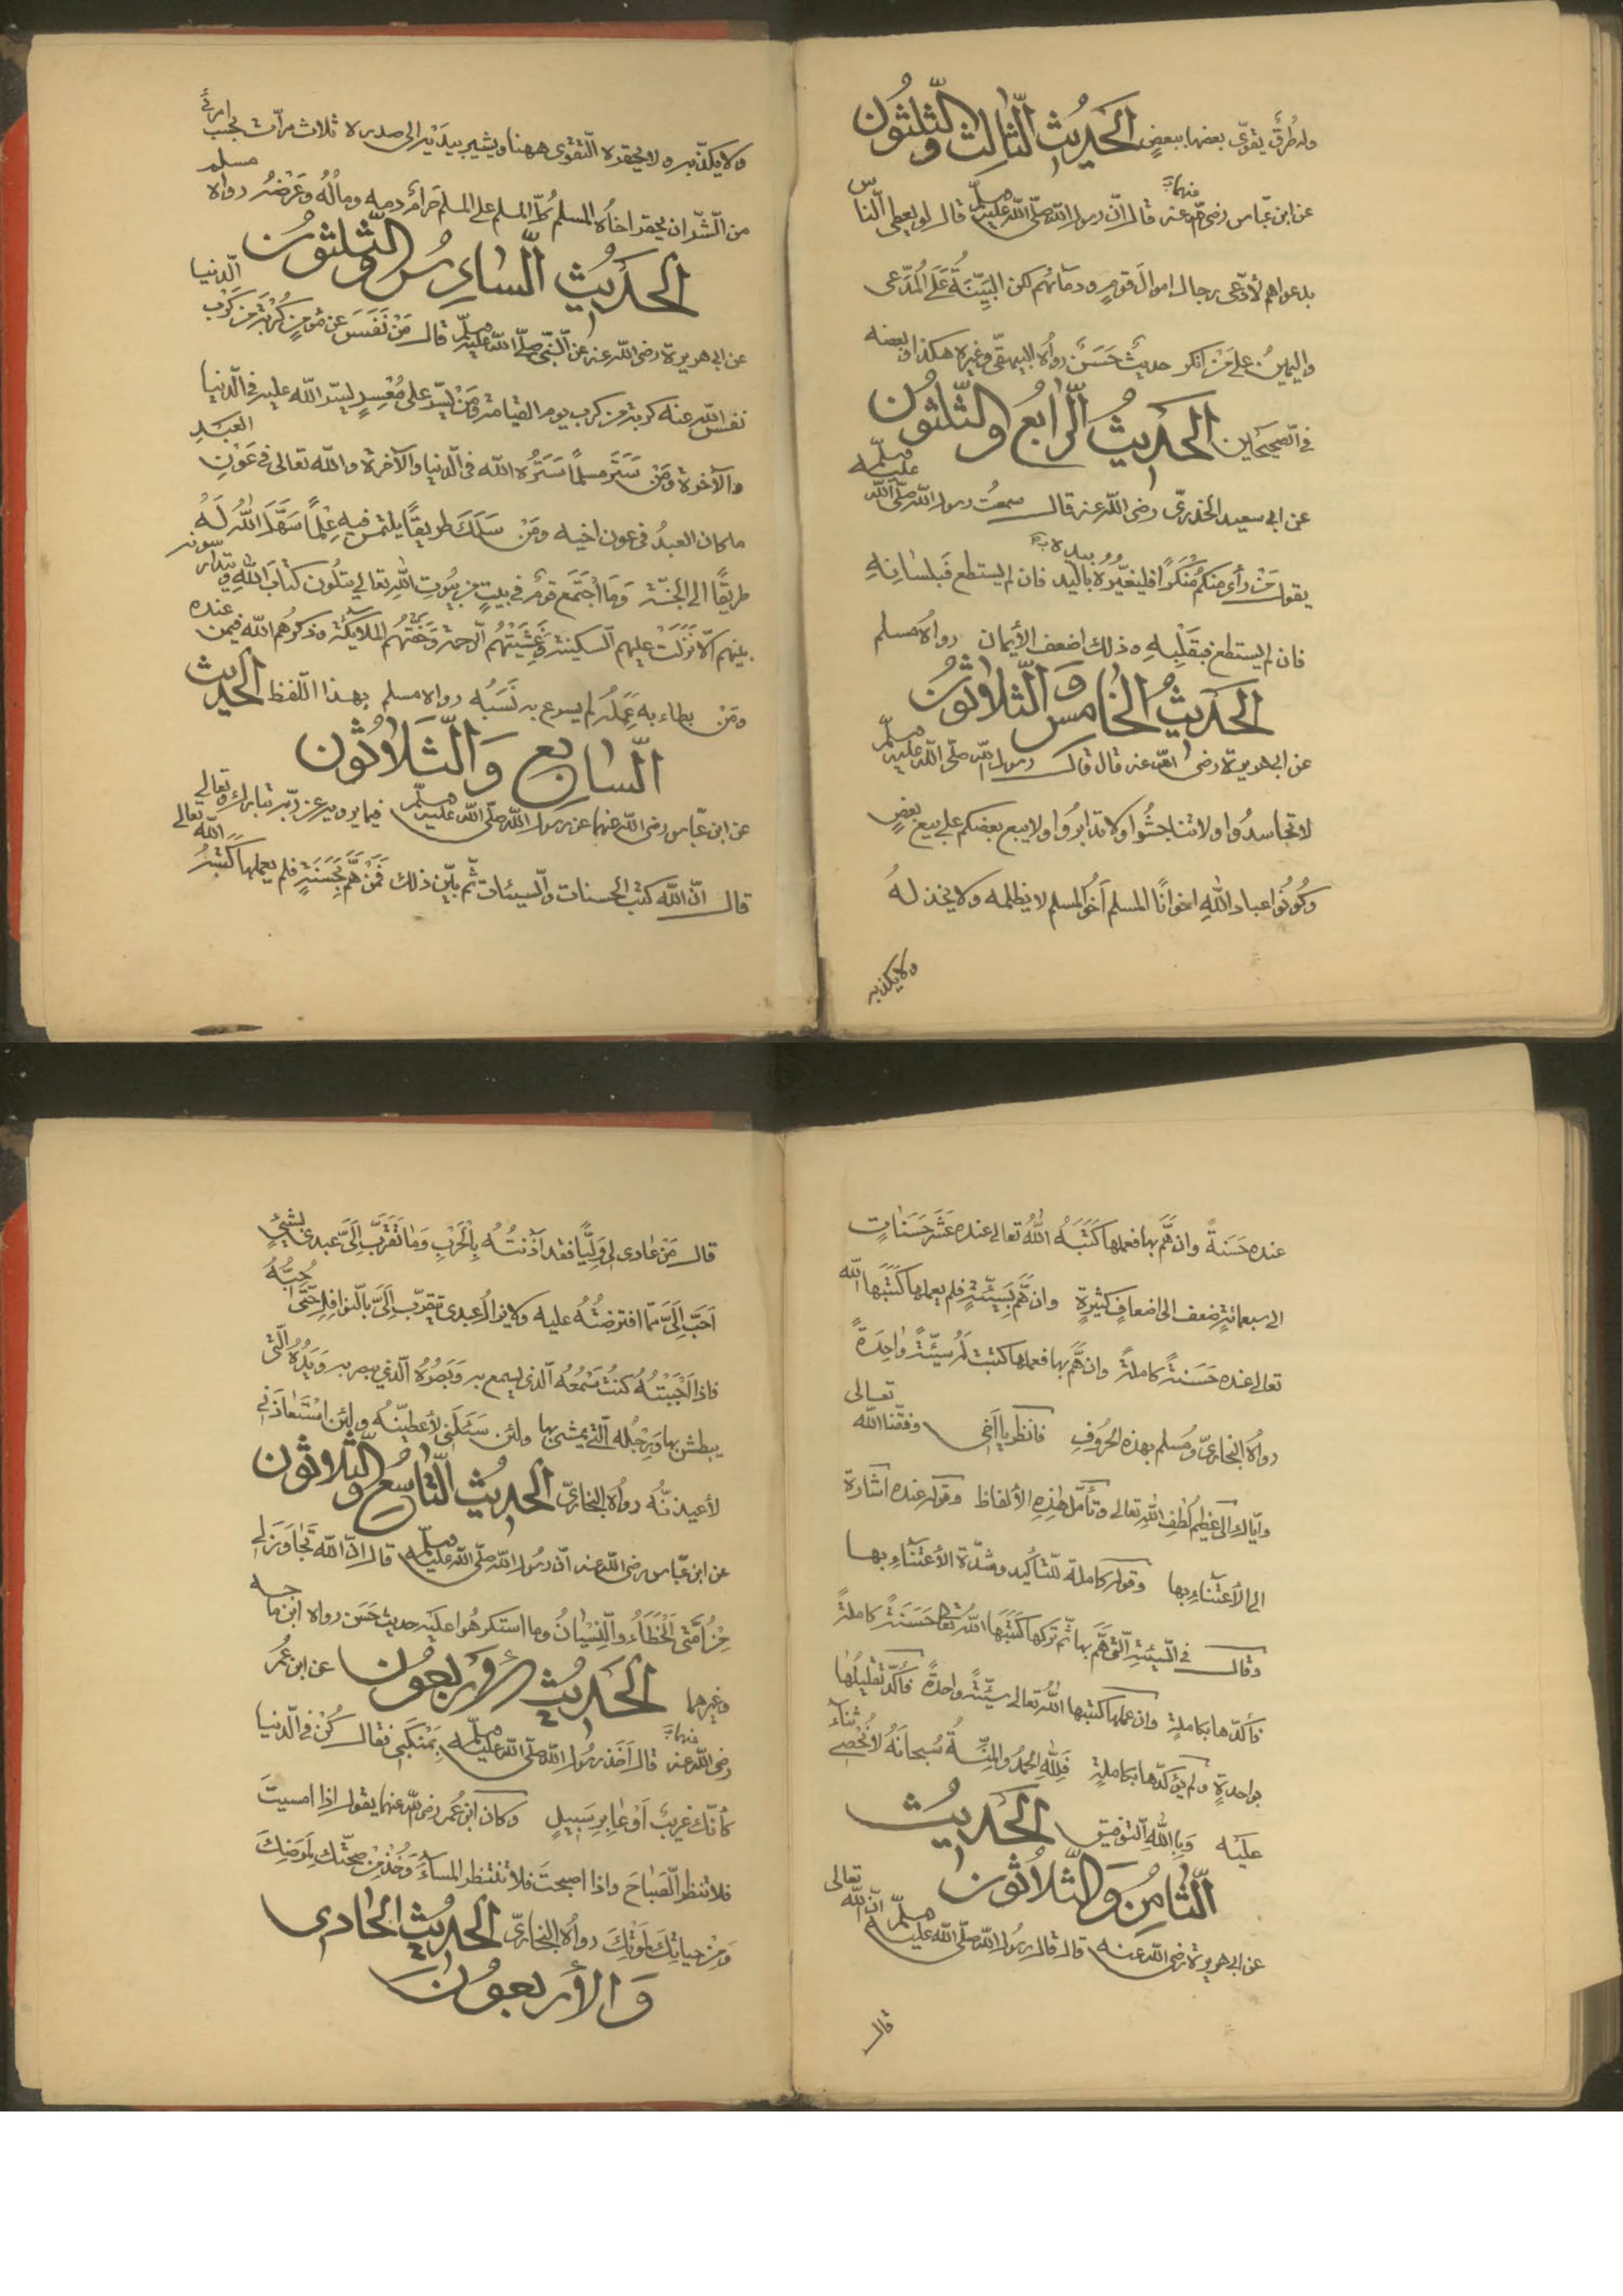 وله طُرقٌ يقوّى بعضها ببعضٍ الحَديثُ الثّالث والثّلثُون
عن ابن عبّاس رضى الله عنهما قال انّ رسول الله صلّى الله عليه وسلّم قال لو يعطى النّاس
بدعواهم لادّعى رجال اموال قومٍ ودمآئهم لكن البَيِّنَةُ عَلَى المُدّعى
واليمينُ على مَنْ انكر حديثٌ حَسَنٌ رواه البيهقىّ وغيره هكذا وبعضه
فى الصّحيحَين الحَديثُ الرّابعُ والثّلثُون
عن ابى سعيد الخذرىّ رضى الله عنه قال سمعتُ رسول الله صلّى الله عليه وسلّم
يقول مَنْ رأى منكم مُنْكَرًا فليغيّرْهُ بيده فان لم يستطع فبلسانِهِ
فان لم يستطع فبقَلْبِهِ وذلك اضعف الأيمان رواه مسلم
الحَديثُ الخامس وَالثّلاثُونُ
عن ابى هريرة رضى الله عنه قال قال رسول الله صلّى الله عليه وسلّم
لا تحاسدُوا ولا تناجشُوا ولا تدابرُوا ولا يبع بعضكم على بيع بعضٍ
وكُونُوا عباد اللهِ اخوانًا المسلم اَخُو المسلم لا يظلمه ولا يخذلهُ
ولا يكذبه
ولا يكذّبه ولا يحقره التّقوى ههنا ويشير بيدَيْه الى صدره ثلاث مرّات بحَسب امرئٍ
من الشّرّ ان يحقر اخاُه المسلم كُلّ المسلم على المسلم حَرامٌ دمه ومالُهُ وعَرْضهُ رواه مسلم
الحَديثُ السّادِسُ والثّلثُون
عن ابى هريرة رضى الله عنه عن النّبىّ صلّى الله عليه وسلّم قال مَنْ نَفَسَ عن مُؤمنٍ كُرْبَةً من كَرْبِ الدّنيا
نفس الله عنه كربة من كرب يوم القيامة ومَنْ يسّر على مُعْسِرٍ يسّر الله عليه فى الدّنيا
والآخرة ومَنْ سَتَرَ مسلمًا سَتَرُه الله فى الدّنيا والآخرة والله تعالى فى عَوْنِ العَبْدِ
ما كان العبدُ فى عون اخيه ومَنْ سَلَكَ طريقًا يلتمس فيه عِلْمًا سَهَّلَ اللهُ لَهُ
طريقًا الى الجَنّة وَمَا اجْتَمَعَ قومٌ فى بيتٍ من بيُوتِ اللهِ تعالى يتلُون كتابَ اللهِ ويتدارسونه
بينهم الّا نَزَلَتْ عليهم السّكينة وغَشِيَتْهُم الرّحمة وحَفّتْهُم الملائكة وذكرهُم الله فيمن عنده
ومَنْ بطاء به عَمَلُهُ لم يسرع به نَسَبُه رواه مسلم بهذا اللّفظ الحَديث
السّابِع وَالثّلاثُون
عن ابن عبّاس رضى الله عنهما عن رسول الله صلّى الله عليه وسلّم فيما يرويه عن ربّه تبارك وتعالى
قال انّ الله كتب الحسنات والسّيئات ثمّ بيّن ذلك فمَنْ هَمَّ بحَسَنَةٍ فلم يعملها كَتَبَهُ الله تعالى
عنده حَسَنةً وان هَمَّ بها فعملها كَتَبَهُ اللهُ تعالى عنده عَشْرَ حَسَنٰاتٍ
الى سبعمائةٍ ضعف الى اضعافٍ كثيرةٍ وان هَمَّ بسَيّئةٍ فلم يعملها كَتَبَهَا الله
تعالى عنده حَسَنةً كاملةً وان هَمَّ بها فعملها كتبت لَهُ سيّئةً وٰاحِدَةً
رواه البخارىّ ومُسلم بهذه الحُرُوفِ فانظر يا اَخى وفّقنا الله تعالى
وايّاك الى عَظيم لُطفِ الله تعالى وتأمّل هٰذِهِ الألفاظ وقوله عنده اشارة
الى الأعتناءِ بها وقوله كاملة للتّأكيد وشدّة الأعتناءِ بها
وقال فى السّيئة الّتى هَمَّ بها ثمّ تركها كَتَبَها اللهُ تعالى حَسَنةً كاملةً
فأكّدها بكاملةٍ وان عملها كتبها اللهُ تعالى سيّئة واحدةً فأكّد تقليلُها
بواحدةٍ ولم يؤكّدها بكاملةٍ فلِلّٰهِ الحَمْدُ والمنّةُ سُبحانَهُ لا نُحْصى ثناءً
عليه وَبِاللهِ التّوفيق الحَديثُ
الثّامِنُ وَالثّلاثُون
عن ابى هريرة رضى الله عنه قال قال رسُول الله صلّى الله عليه وسلّم انّ الله تعالى
قال
قال مَنْ عٰادى لى وَلِيًّا فقد آذَنْتُهُ بِالْحَرْبِ وَمَا تَقَرَّبَ اِلَىَّ عبدى بشَئٍ
اَحَبّ اِلَىَّ ممّا افترضْتُهُ عليه ولا يزالُ عبدى يتقرّب اِلَىَّ بالنّوافلِ حَتّى اُحِبُّهُ
فاذا اَحْبَبْتُهُ كنتُ سَمْعُهُ الّذى يسمع به وَبَصَرُهُ الّذي يبصر به وَيَدُهُ الّتى
يبطش بها وَرِجْلُه الّتى يمشى بها ولئن سَئَلَنى لأعطينّه ولئن اسْتَعٰاذَنى
لأعيذنّه رواه البخارىّ الحَديثُ التّاسعُ والثّلاثُون
عن ابن عبّاس رضى الله عنه انّ رسُول الله صلّى الله عليه وسلّم قال انّ الله تَجٰاوَزَ لى
مِنْ اُمَّتى الْخَطَاءُ والنِّسْيٰانُ وما استكرهُوا عليه حديث حَسَن رواه ابن ماجه
وغيرهما الحَديثُ الأربعُون عن ابن عُمَر
رضى الله عنهما قال اَخَذ رسُول الله صلّى الله عليه وسلّم بِمَنْكَبى فقال كُنْ فى الدّنيا
كأنّك غريبٌ اَوْ عٰابِر سَبيلٍ وكان ابن عُمر رضى الله عنهما يقول اذٰا امسيتَ
فلا تنظر الصَّبٰاحَ واذا اصبحتَ فلا تنتظر المساءَ وَخُذْ مِنْ صحّتك لِمَرَضِكَ
وَمِنْ حياتِكَ لمَوْتِكَ رواه البخارىّ الحَديثُ الحٰادى
وَالأربعُون